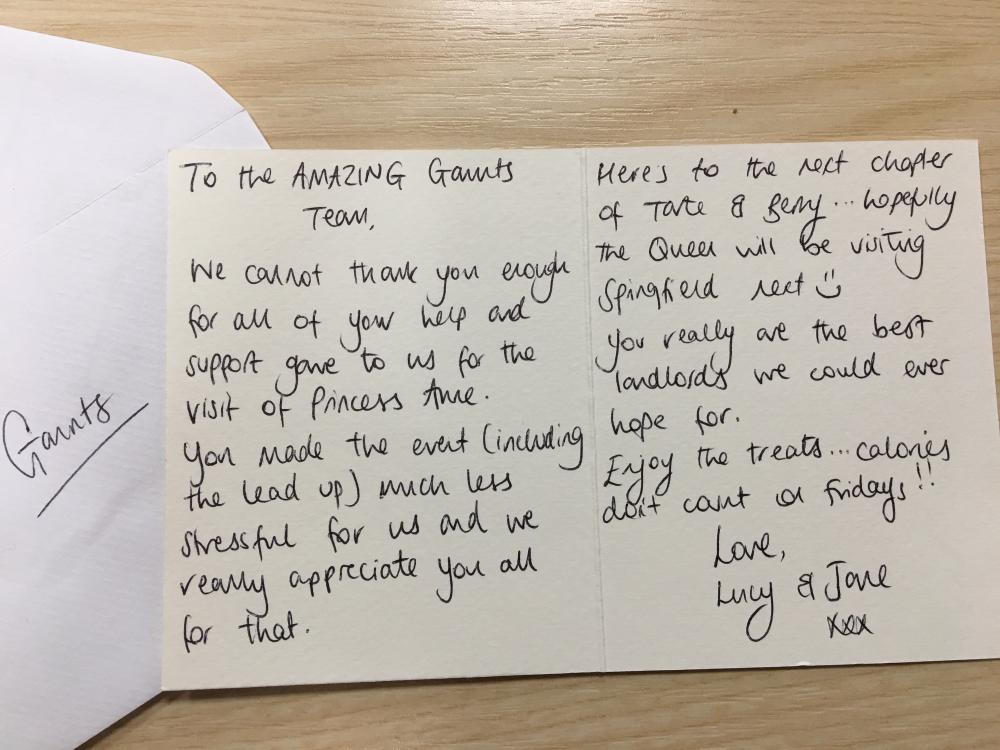 Gaunts
To the AMAZING Gaunts
Team,
We cannot thank you enough
for all of your help and
support gave to us for the
visit of Princess Anne.
You made the event (including
the lead up) much less
stressful for us and we
really appreciate you all
for that.
Here's to the next chapter
of Tarte & Berry... hopefully
the Queen will be visiting
Spingfield next
You really are the best
landlords we could ever
hope for.
Enjoy the treats... calories
don't count on Fridays!!
Love,
Lucy & Jane
xxx